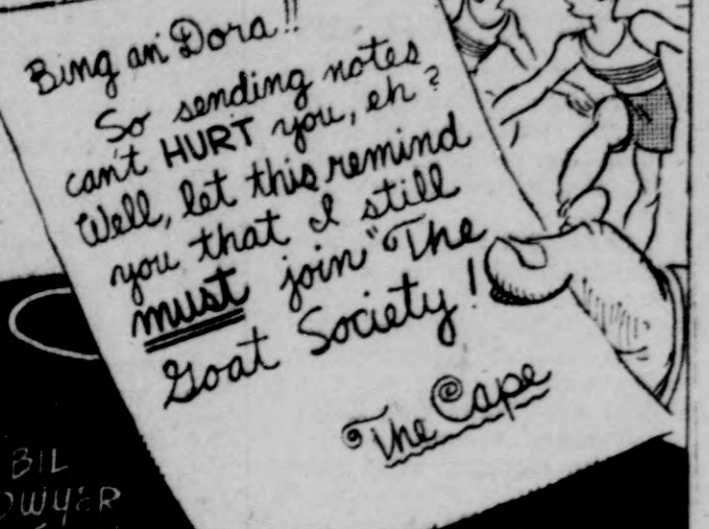 Bing an' Dora!!
So sending notes
can't HURT you, eh?
Well, let this remind
you that I still
must join "The
Goat Society!
The Cape
BIL
DWYER